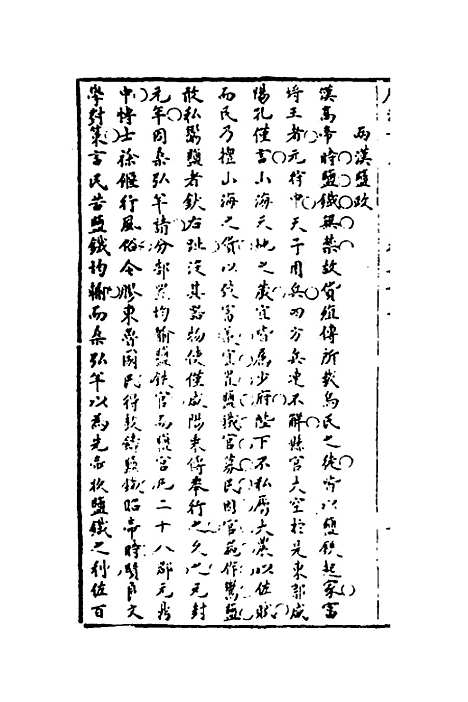 兩漢鹽政
漢高帝時鹽鐵無禁故貨殖傳所載烏氏之徒皆以鹽鉄起家富
埓王者元狩中天子用兵四方兵連不解縣官大空於是東郭咸
陽孔僅言山海天地之藏宜皆属少府陛下不私属大農以佐賦
而民乃擅山海之貨以致富羡宜置鹽鐵官募民因官器作鬻鹽
敢私鬻鹽者釱右趾沒其器物使僅咸陽乘傳奉行之久之元封
元年因桑弘羊請分部置均輸鹽鉄官而鹽官凡二十八郡元鼎
中博士徐偃行風俗令膠東魯國民得鼓鑄鹽鐵昭帝時賢良文
學對策言民苦鹽鐵均輸而桑弘羊以為先帝权鹽鐵之利佐百